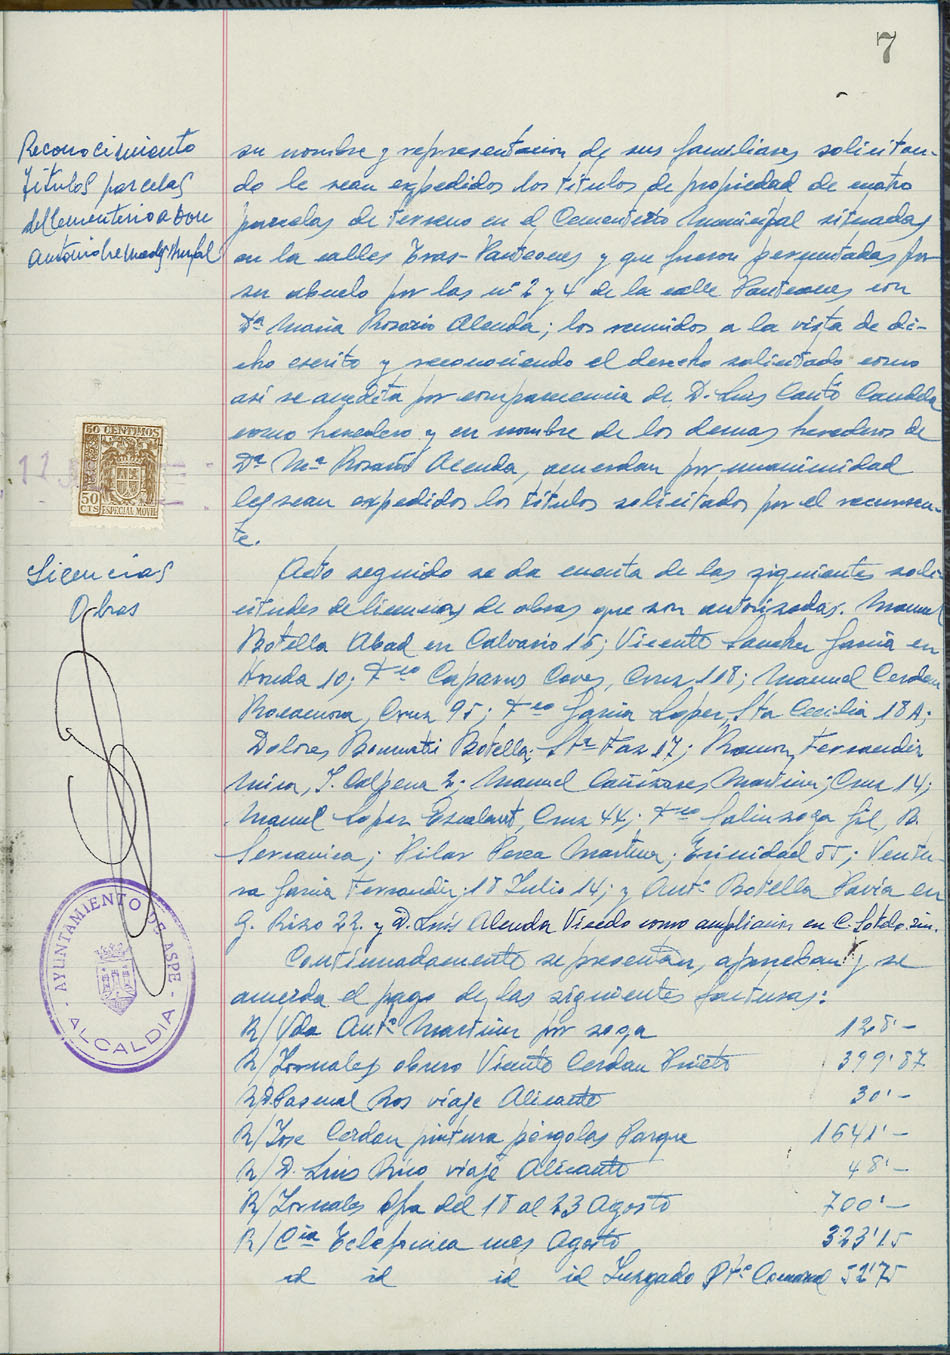 7
Reconocimiento
Titulos parcelas
del Cementerio a Don
Antonio
su nombre y representacion de sus familiares solicitan-
do le sean expedidos los titulos de propiedad de cuatro
parcelas de terreno en el Cementerio Municipal situadas
en la calles Tras-Panteones y que fueron permutadas por
su abuelo por las nº 2 y 4 de la calle Panteones con
Dª Maria Rosario Alenda; los reunidos a la vista de di-
cho escrito y reconociendo el derecho solicitado como
asi se acredita por comparecencia de D. Luis Cantó Candela
como heredero y en nombre de los demas herederos de
Dª Mª Rosario Alenda, acuerdan por unanimidad
le sean expedidos los titulos solicitados por el recurren-
te.
50 CENTIMOS
50
CTS
ESPECIAL MOVIL
Licencias
Obras
Acto seguido se da cuenta de las siguientes soli-
citudes de licencias de obras que son autorizadas. Manuel
Botella Abad en Calvario 16; Vicente Sanchez Garcia en
Honda 10; Fco Caparros Coves, Cruz 118; Manuel Cerdan
Rocamora, Cruz 95; Fco Garcia Lopez, Sta Cecilia 18A;
Dolores Botella, Stª Faz 17; Ramon Fernandez
Mira, J. Calpena 2; Manuel Cañizares Martinez; Cruz 14;
Manuel Lopez Escalant, Cruz 44; Fco Galinzoga Gil, B.
Serranica; Pilar Perea Martinez; Trinidad 55; Ventu-
ra Garcia Fernandez; 18 Julio 14; y Antº Botella Pavía en
G. Rizo 22. y D. Luis Alenda Vicedo como ampliación en C. Sotelo
AYUNTAMIENTO DE ASPE
- ALCALDIA -
Continuadamente se presentan, aprueban y se
acuerda el pago de las siguientes facturas:
R/ Vda Antº Martinez por soga 128'-
R/ Jornales obrero Vicente Cerdan Prieto 399'87
R/ D. Pascual Ros viaje Alicante 30'-
R/ Jose Cerdan pintura pérgolas Parque 1641'-
R/ D. Luis Rico viaje Alicante 48'-
R/ Jornales Ofra del 18 al 23 Agosto 700'-
R/ Cia Telefonica mes Agosto 323'15
id id id id Juzgado Ptº Comand 52'75